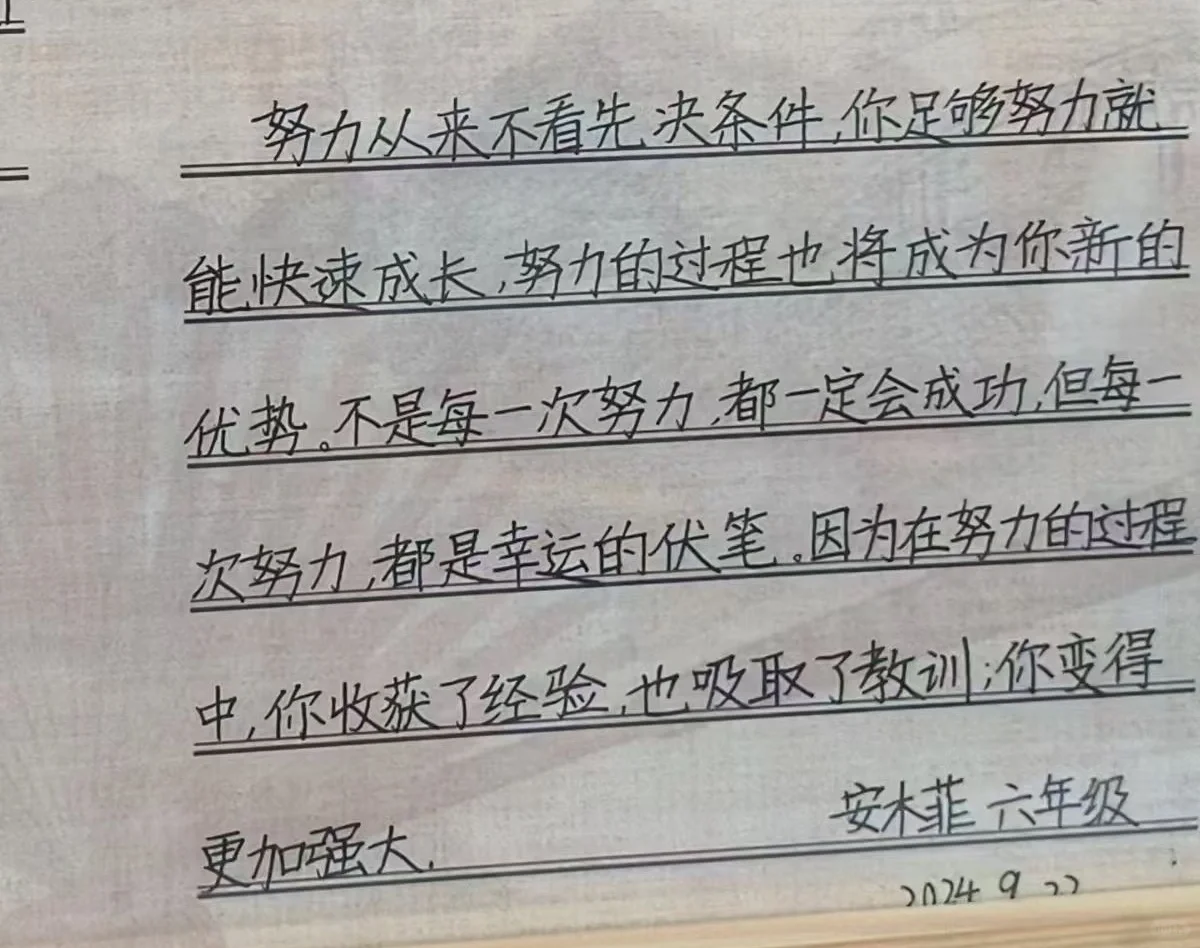 努力从来不看先决条件,你足够努力就
能快速成长,努力的过程也将成为你新的
优势。不是每一次努力,都一定会成功,但每一
次努力,都是幸运的伏笔。因为在努力的过程
中,你收获了经验,也吸取了教训;你变得
更加强大.
安木菲 六年级
2024 9 22